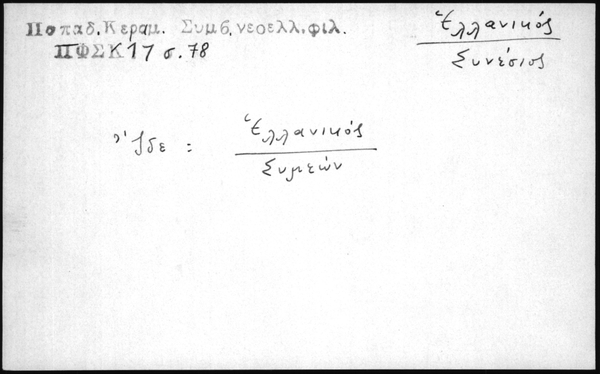 Παπαδ. Κεραμ. Συμβ. νεοελλ. φιλ.
ΠΦΣΚ 17 σ. 78
Ἑλλανικός
Συνέσιος
Ἴδε : Ἑλλανικός
Συμεών